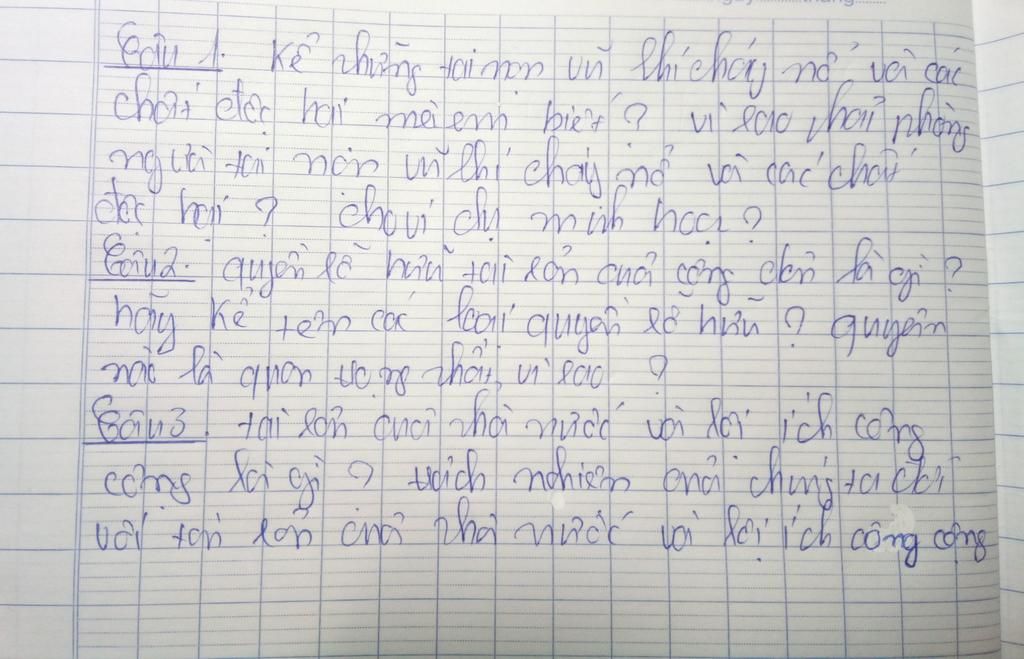 Câu 1. Kể những tai nạn vũ khí cháy nổ và các
chất độc hại mà em biết? vì sao phải phòng
ngừa tai nạn vũ khí cháy nổ và các chất
độc hại? cho ví dụ minh họa?
Câu 2. quyền sở hữu tài sản của công dân là gì?
hãy kể tên các loại quyền sở hữu? quyền
nào là quan trọng nhất, vì sao?
Câu 3. tài sản của nhà nước và lợi ích công
cộng là gì? trách nghiệm của chúng ta đối
với tài sản của nhà nước và lợi ích công cộng